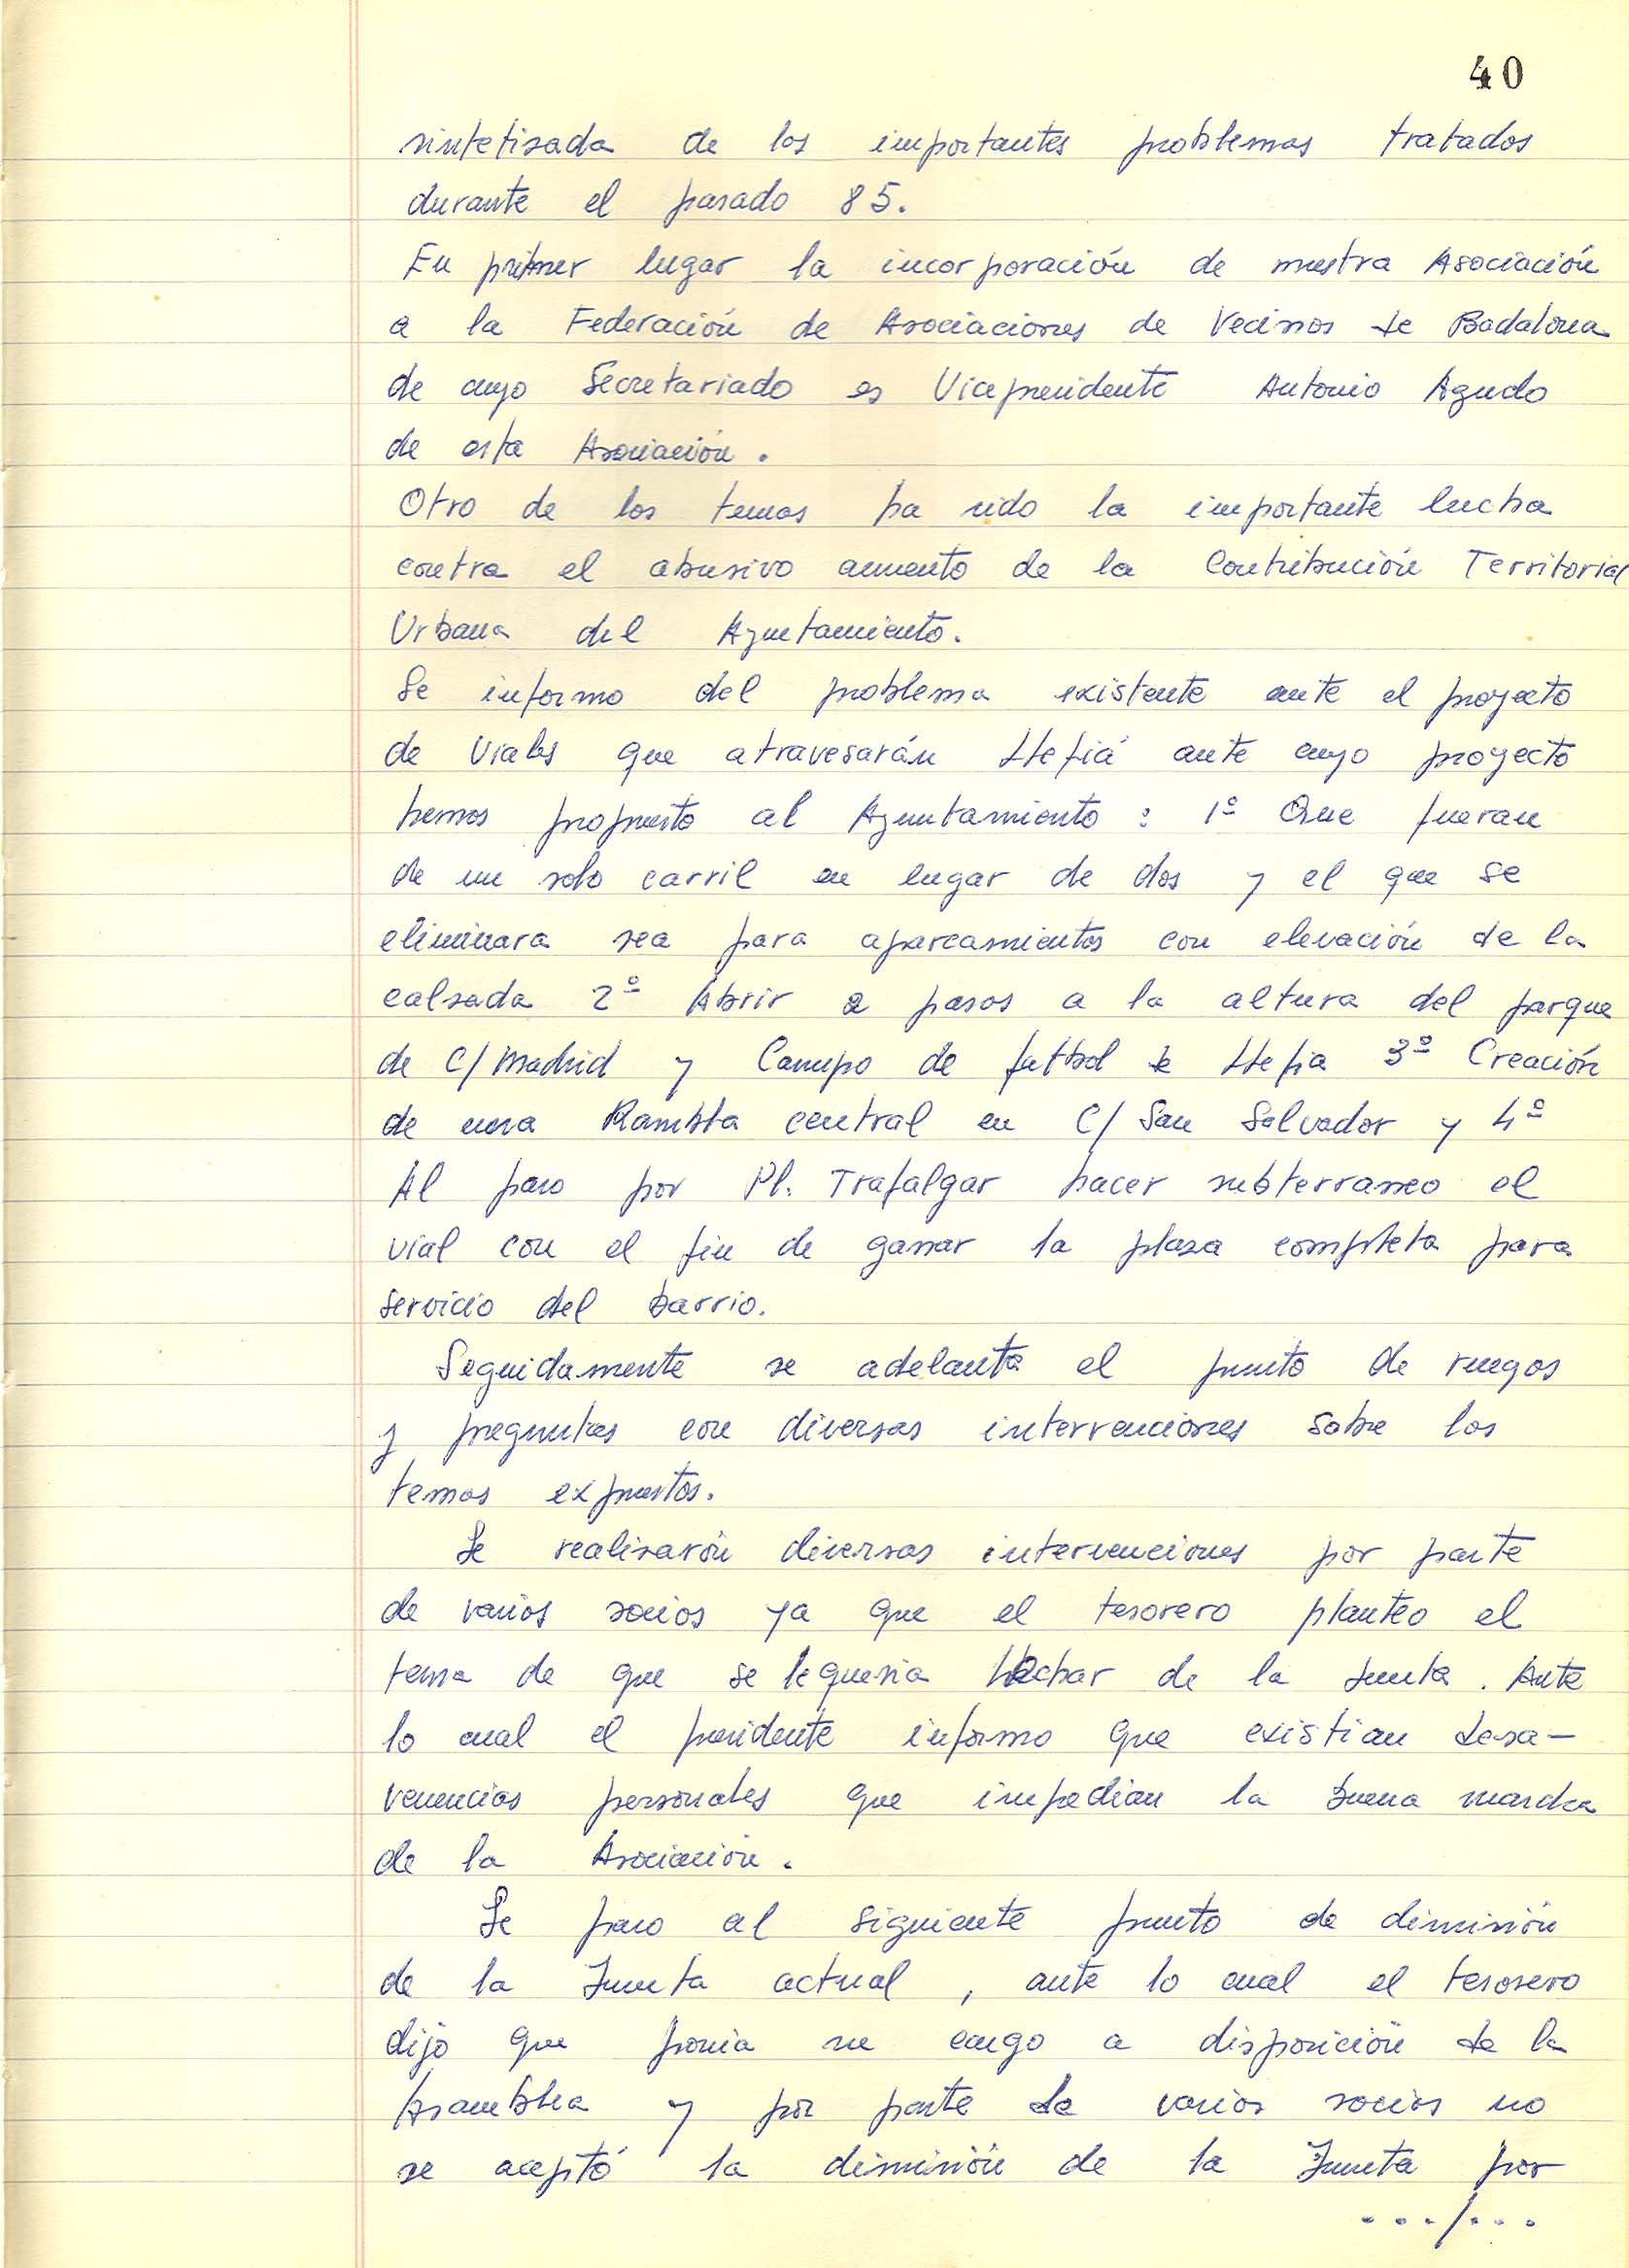 40
sintetisada de los importantes problemas tratados
durante el pasado 85.
En primer lugar la incorporación de nuestra Asociación
a la Federación de Asociaciones de Vecinos de Badalona
de cuyo Secretariado es Vicepresidente Antonio Agudo
de esta Asociación.
Otro de los temas ha sido la importante lucha
contra el abusivo aumento de la Contribución Territorial
Urbana del Ayuntamiento.
Se informo del problema existente ante el proyecto
de Viales que atravesarán Llefiá ante cuyo proyecto
hemos propuesto al Ayuntamiento : 1º Que fueran
de un solo carril en lugar de dos y el que se
eliminara sea para aparcamientos con elevación de la
calsada 2º Abrir 2 pasos a la altura del parque
de C/ Madrid y Campo de futbol de Llefia 3º Creación
de una Rambla central en C/ San Salvador y 4º
Al paso por Pl. Trafalgar hacer subterraneo el
vial con el fin de ganar la plaza completa para
servicio del barrio.
Seguidamente se adelanta el punto de ruegos
y preguntas con diversas intervenciones sobre los
temas expuestos.
Se realisarón diversas intervenciones por parte
de varios socios ya que el tesorero planteo el
tema de que se le queria hechar de la Junta. Ante
lo cual el presidente informo que existian desa-
venencias personales que impedian la buena marcha
de la Asociación.
Se paso al siguiente punto de dimisión
de la Junta actual, ante lo cual el tesorero
dijo que ponia su cargo a disposición de la
Asamblea y por parte de varios socios no
se aceptó la dimisión de la Junta por
.../...